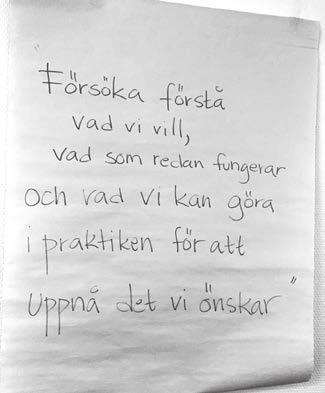 Försöka förstå
vad vi vill,
vad som redan fungerar
och vad vi kan göra
i praktiken för att
uppnå det vi önskar"